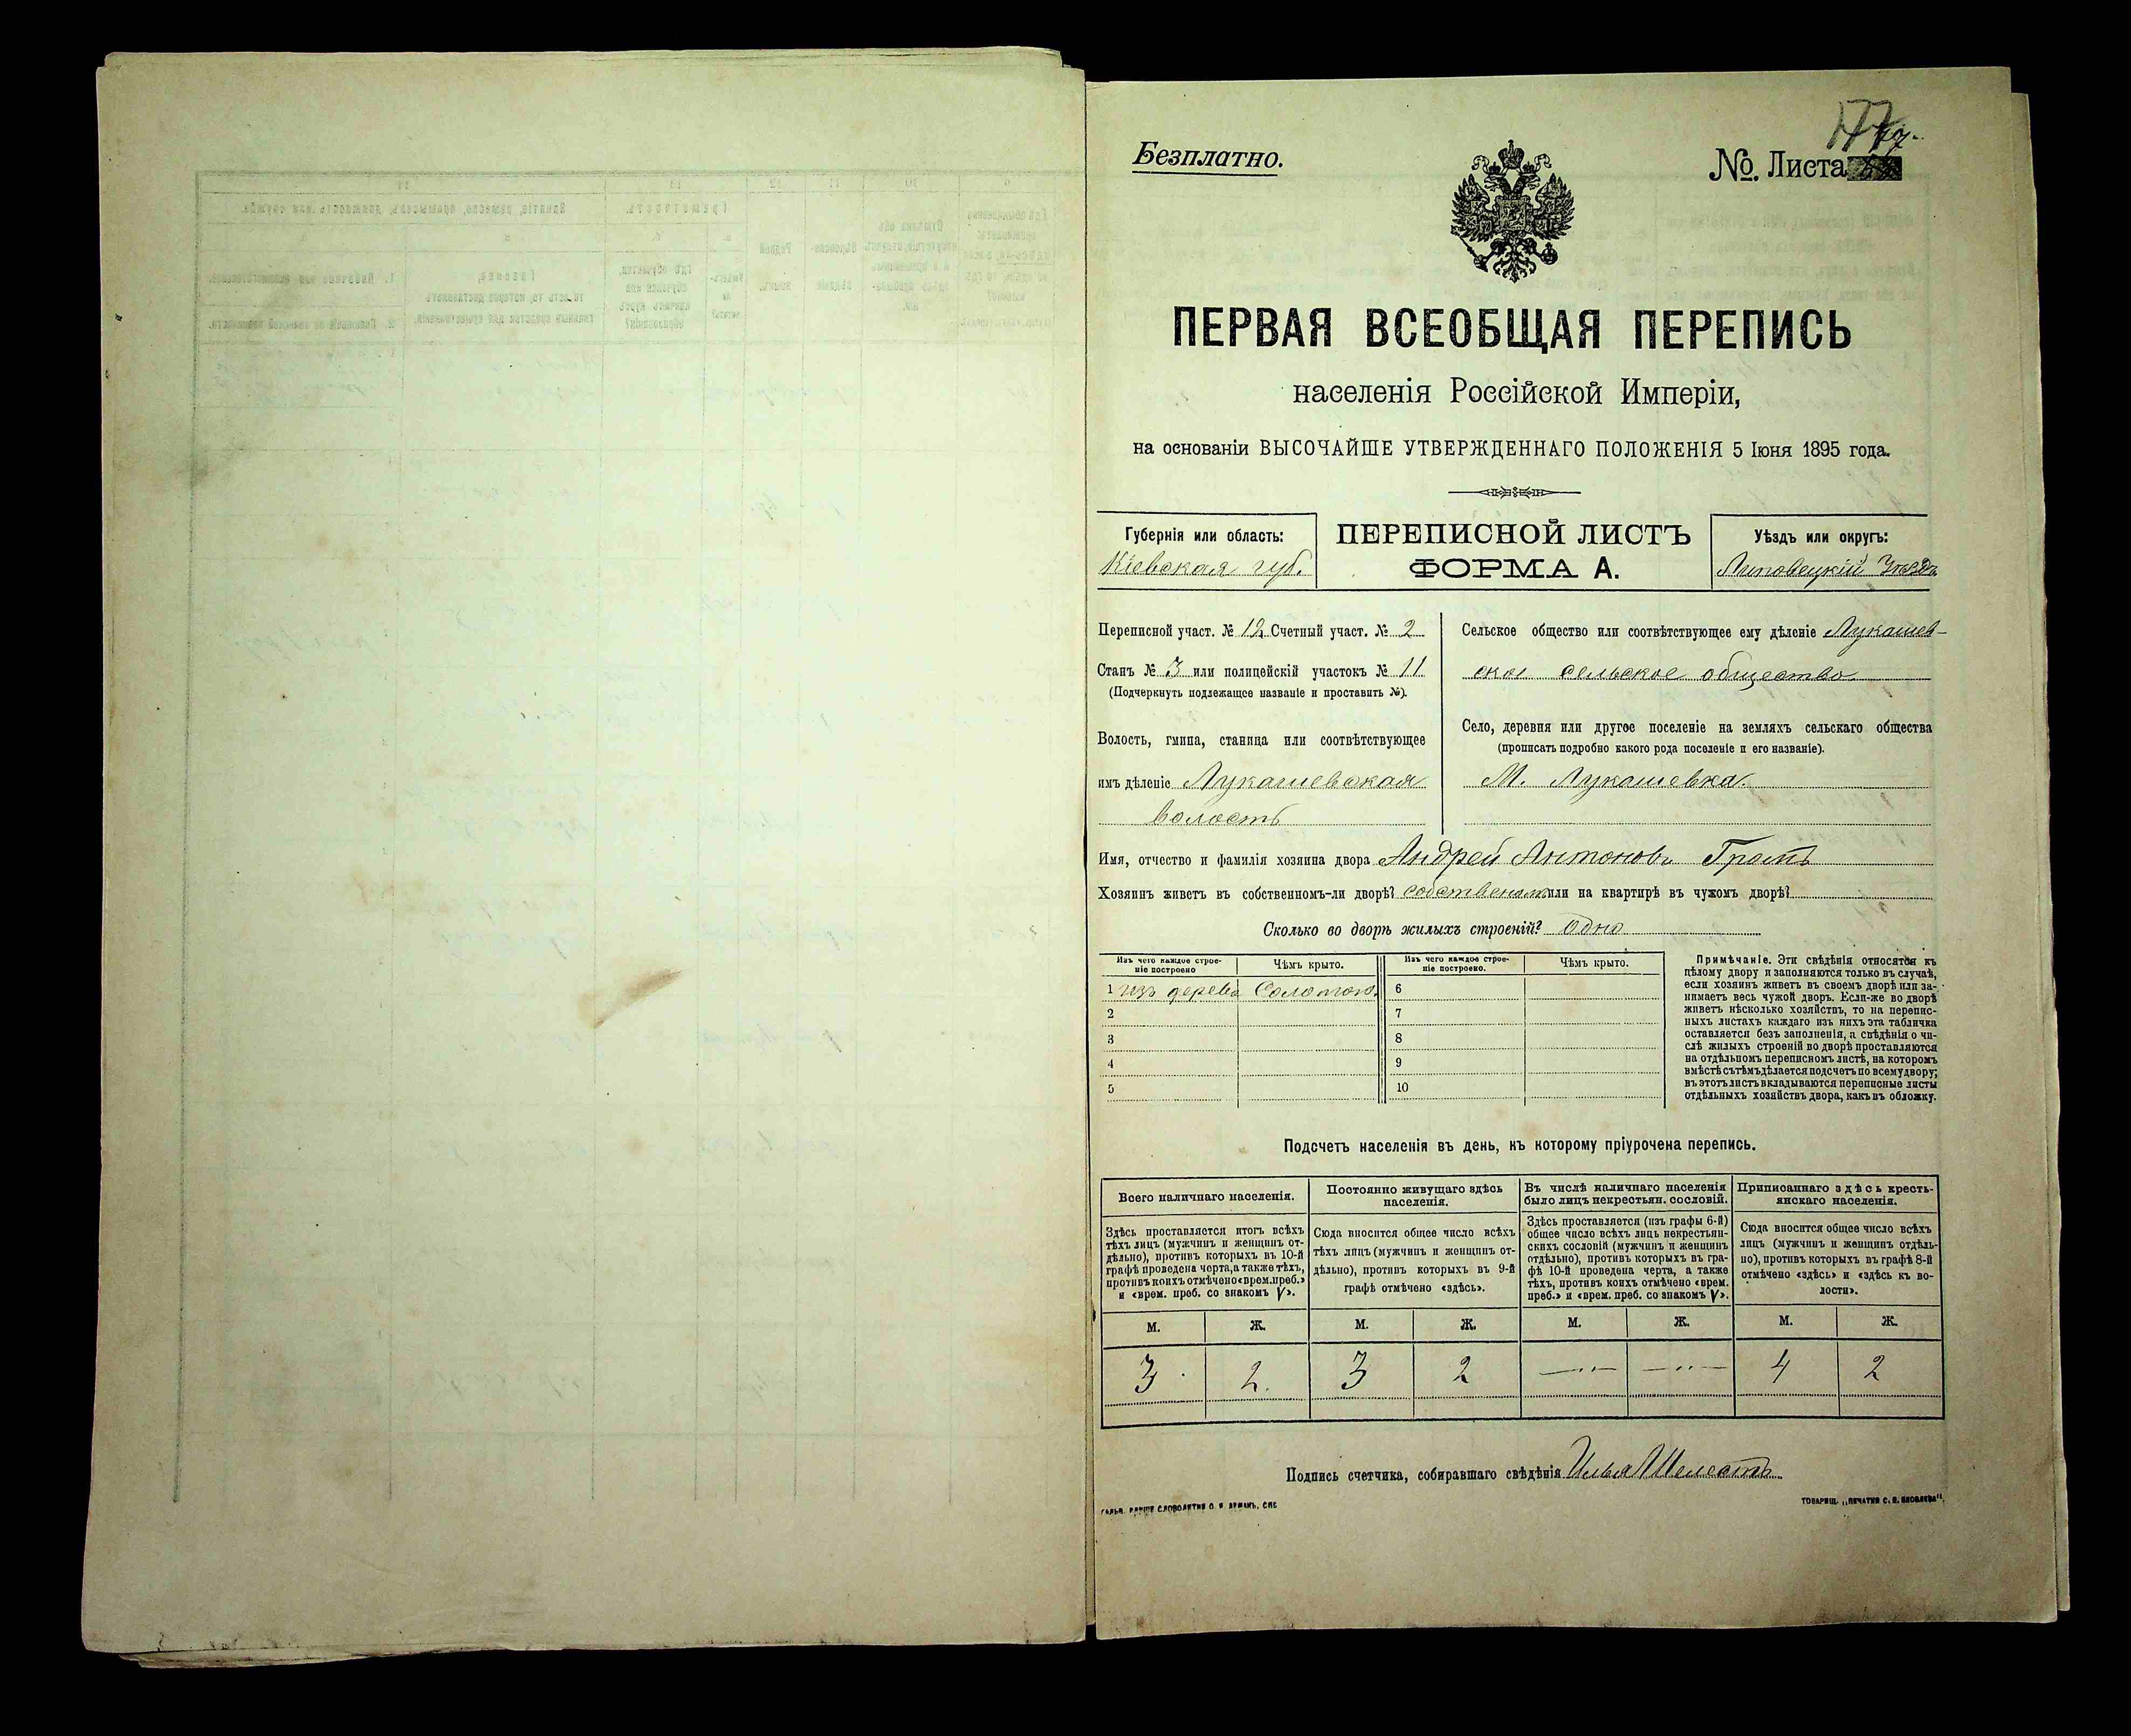 177
Безплатно.
№. Листа
ПЕРВАЯ ВСЕОБЩАЯ ПЕРЕПИСЬ
населенія Россійской Имперіи,
на основаніи ВЫСОЧАЙШЕ УТВЕРЖДЕННАГО ПОЛОЖЕНІЯ 5 Іюня 1895 года.
Губернія или область:
Кіевская губ.
ПЕРЕПИСНОЙ ЛИСТЪ
ФОРМА А.
Уѣздъ или округъ:
Липовецкій Уѣздъ
Переписной участ. № 12 Счетный участ. № 2
Станъ № 3 или полицейскій участокъ № 11
(Подчеркнуть подлежащее названіе и проставить №).
Волость, гмина, станица или соотвѣтствующее
имъ дѣленіе Лукашевская
волость
Сельское общество или соотвѣтствующее ему дѣленіе Лукашев-
ское сельское общество
Село, деревня или другое поселеніе на земляхъ сельскаго общества
(прописать подробно какого рода поселеніе и его названіе).
М. Лукашевка.
Имя, отчество и фамилія хозяина двора Андрей Антоновъ
Хозяинъ живетъ въ собственномъ-ли дворѣ? собственомъ или на квартирѣ въ чужомъ дворѣ?
Сколько во дворѣ жилыхъ строеній? одно
Изъ чего каждое строе-
ніе построено
Чѣмъ крыто.
Изъ чего каждое строе-
ніе построено.
Чѣмъ крыто.
1 изъ дерева Соломою.
2
3
4
5
6
7
8
9
10
Примѣчаніе. Эти свѣдѣнія относятся къ
цѣлому двору и заполняются только въ случаѣ,
если хозяинъ живетъ въ своемъ дворѣ или за-
нимаетъ весь чужой дворъ. Если-же во дворѣ
живетъ нѣсколько хозяйствъ, то на перепис-
ныхъ листахъ каждаго изъ нихъ эта табличка
оставляется безъ заполненія, а свѣдѣнія о чи-
слѣ жилыхъ строеній во дворѣ проставляются
на отдѣльномъ переписномъ листѣ, на которомъ
вмѣстѣ съ тѣмъ дѣлается подсчетъ по всему двору;
въ этотъ листъ вкладываются переписные листы
отдѣльныхъ хозяйствъ двора, какъ въ обложку.
Подсчетъ населенія въ день, къ которому пріурочена перепись.
Всего наличнаго населенія.
Здѣсь проставляется итогъ всѣхъ
тѣхъ лицъ (мужчинъ и женщинъ от-
дѣльно), противъ которыхъ въ 10-й
графѣ проведена черта, а также тѣхъ,
противъ коихъ отмѣчено «врем. преб.»
и «врем. преб. со знакомъ V».
Постоянно живущаго здѣсь
населенія.
Сюда вносится общее число всѣхъ
тѣхъ лицъ (мужчинъ и женщинъ от-
дѣльно), противъ которыхъ въ 9-й
графѣ отмѣчено «здѣсь».
Въ числѣ наличнаго населенія
было лицъ некрестьян. сословій.
Здѣсь проставляется (изъ графы 6-й)
общее число всѣхъ лицъ некрестьян-
скихъ сословій (мужчинъ и женщинъ
отдѣльно), противъ которыхъ въ гра-
фѣ 10-й проведена черта, а также
тѣхъ, противъ коихъ отмѣчено «врем.
преб.» и «врем. преб. со знакомъ V».
Приписаннаго здѣсь кресть-
янскаго населенія.
Сюда вносится общее число всѣхъ
лицъ (мужчинъ и женщинъ отдѣль-
но), противъ которыхъ въ графѣ 8-й
отмѣчено «здѣсь» и «здѣсь къ во-
лости».
М. Ж. М. Ж. М. Ж. М. Ж.
3 2 3 2 —"— —"— 4 2
Подпись счетчика, собиравшаго свѣдѣнія Илья Шелестъ
ТОВАРИЩ. „ПЕЧАТНЯ С. П. ЯКОВЛЕВА“.